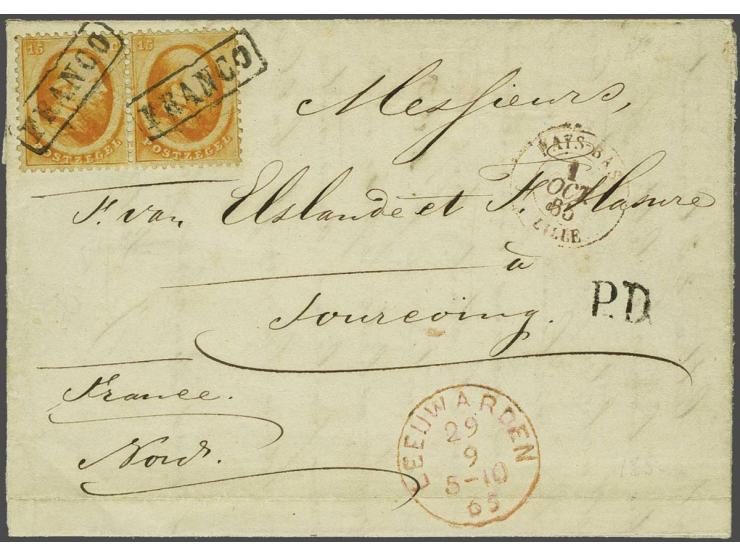 15
15
FRANCO
FRANCO
POSTZEGEL
POSTZEGEL
Messieurs,
PAYS-BAS
1
OCT
65
LILLE
F. van Elslande et F. Masure
à
Tourcoing.
P.D.
France.
Nord.
LEEUWARDEN
29
9
5-10
65